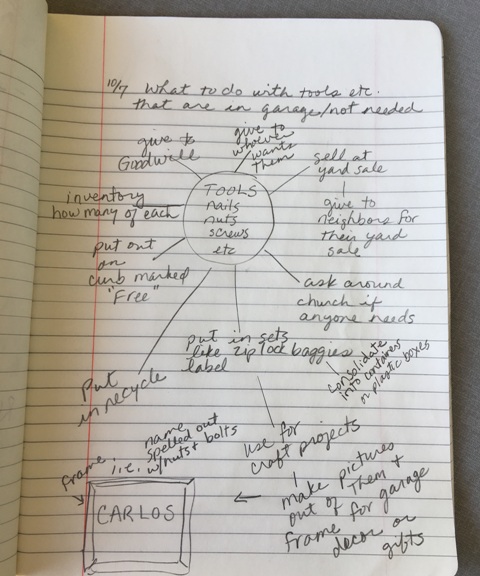 10/7 What to do with tools etc.
that are in garage/not needed
give to
Goodwill
give to
whoever
wants
them
sell at
yard sale
give to
neighbors for
their yard
sale
inventory
how many of each
TOOLS
nails
nuts
screws
etc
put out
on
curb marked
"Free"
ask around
church if
anyone needs
put in sets
like ziplock baggies
label
consolidate
into containers
or plastic boxes
put
in recycle
use for
craft projects
make pictures
out of them +
frame for garage
decor or
gifts
name
spelled out
i.e., w/nuts + bolts
frame
CARLOS